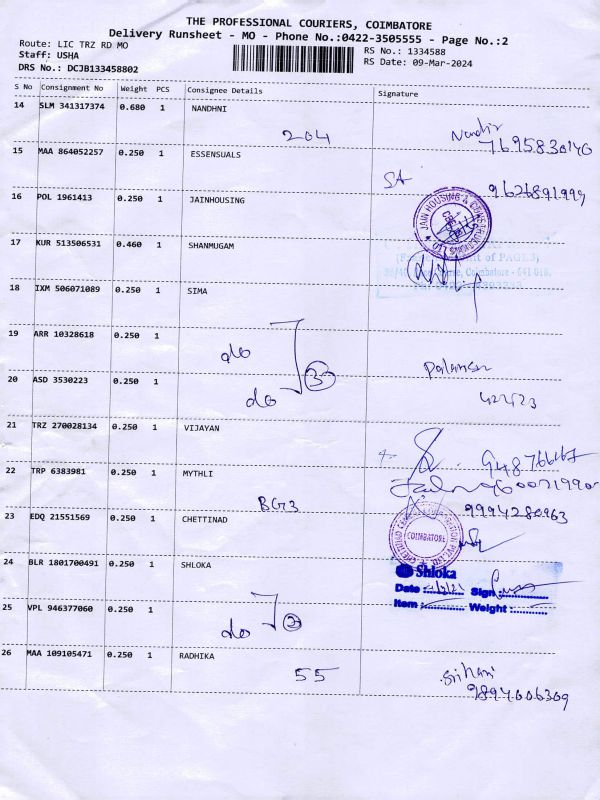 THE PROFESSIONAL COURIERS, COIMBATORE
Delivery Runsheet - MO - Phone No.:0422-3505555 - Page No.:2
Route: LIC TRZ RD MO
RS No.: 1334588
Staff: USHA
RS Date: 09-Mar-2024
DRS No.: DCJB133458802
S No Consignment No Weight PCS Consignee Details Signature
14 SLM 341317374 0.680 1 NANDHNI
204
7695830140
15 MAA 864052257 0.250 1 ESSENSUALS
SA 9626891999
16 POL 1961413 0.250 1 JAINHOUSING
JAIN HOUSING & CONSTRUCTIONS LTD
17 KUR 513506531 0.460 1 SHANMUGAM
Coimbatore - 641 018.
18 IXM 506071089 0.250 1 SIMA
19 ARR 10328618 0.250 1
do 3
20 ASD 3530223 0.250 1
do
21 TRZ 270028134 0.250 1 VIJAYAN
22 TRP 6383981 0.250 1 MYTHLI
BG3
9994280963
23 EDQ 21551569 0.250 1 CHETTINAD
COIMBATORE
24 BLR 1801700491 0.250 1 SHLOKA
Shloka
Date Sign
Item Weight
25 VPL 946377060 0.250 1
do
26 MAA 109105471 0.250 1 RADHIKA
55
Srihari
9894006309